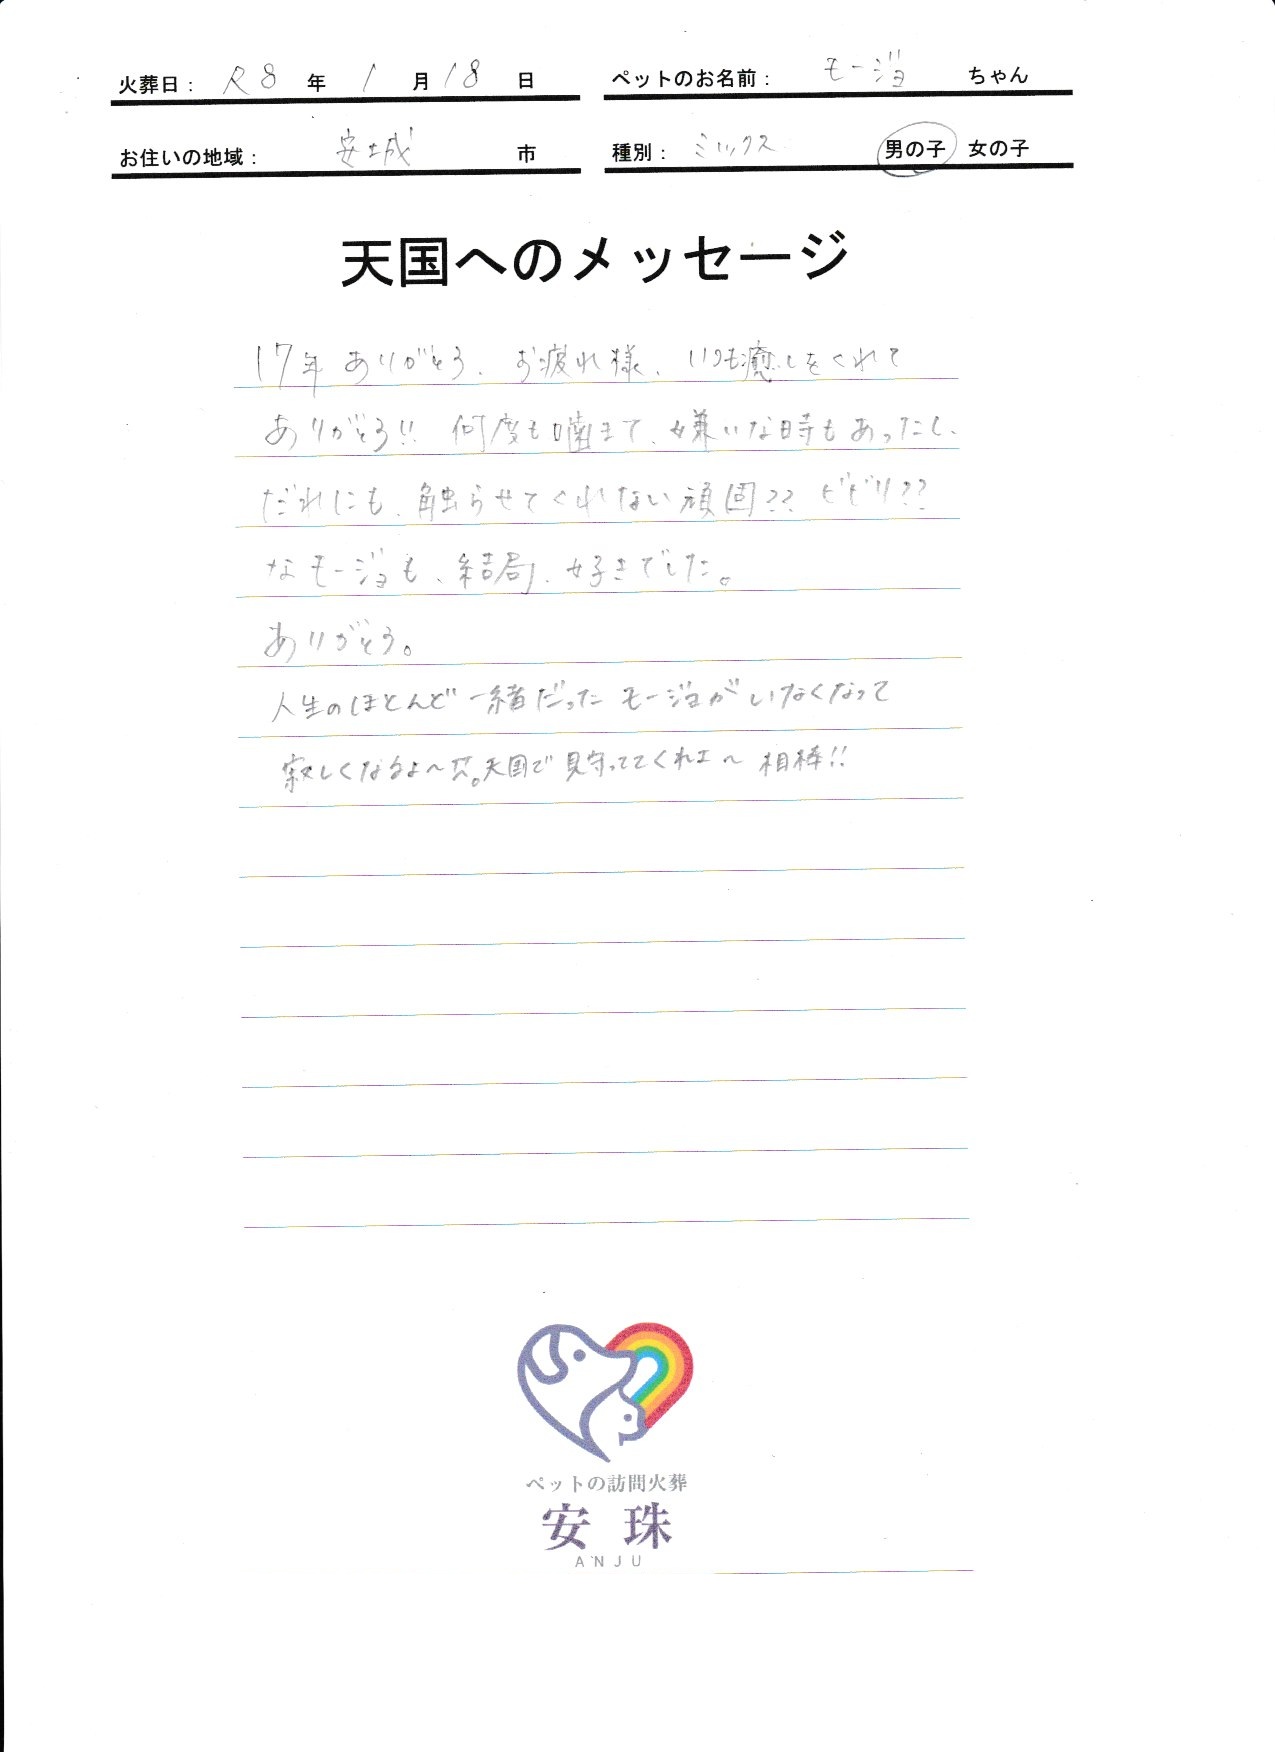 火葬日： R8 年 1 月 18 日 ペットのお名前： モージョ ちゃん
お住いの地域： 安城 市 種別： ミックス 男の子 女の子
天国へのメッセージ
17年 ありがとう、お疲れ様、いつも癒しをくれて
ありがとう!! 何度も噛まて、嫌いな時もあったし、
だれにも、触らせてくれない頑固?? ビビリ??
なモージョも、結局、好きでした。
ありがとう。
人生のほとんど一緒だったモージョがいなくなって
寂しくなるよ〜 天国で見守っててくれよ〜 相棒!!
ペットの訪問火葬
安珠
ANJU